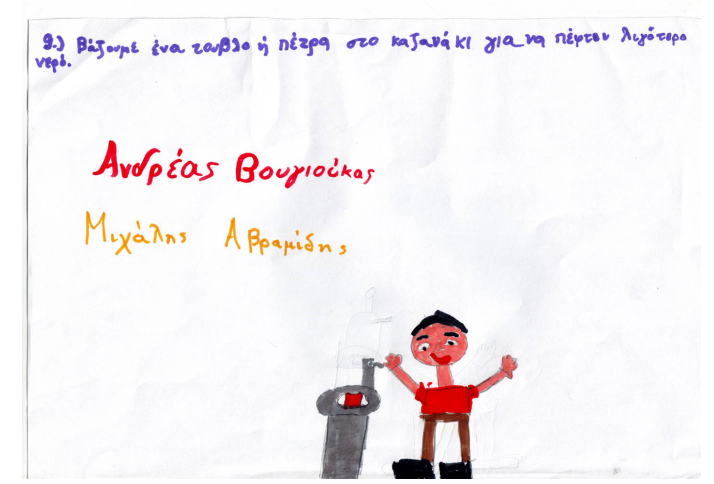 9.) Βάζουμε ένα τουβλο ή πέτρα στο καζανάκι για να πέφτει λιγότερο
νερό.
Ανδρέας Βουγιούκας
Μιχάλης Αβραμίδης